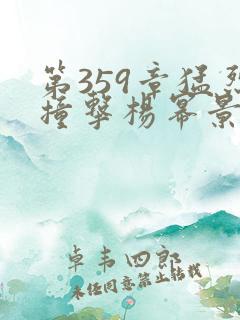 第359章猛烈
撞擊楊冪景
卓韦四郎
未经同意禁止转载